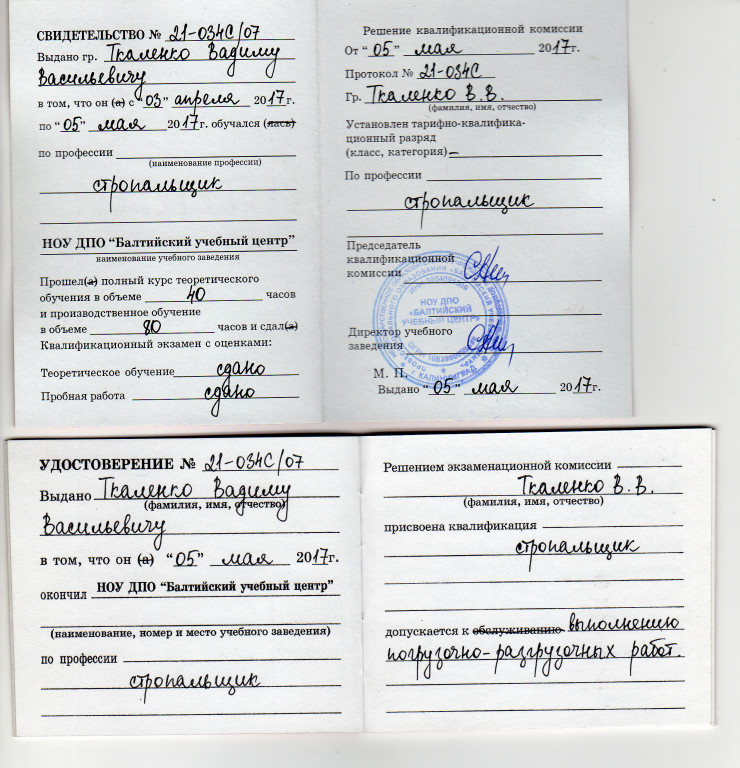 СВИДЕТЕЛЬСТВО № 21-034С/07
Выдано гр. Ткаленко Вадиму
Васильевичу
в том, что он (а) с "03" апреля 2017г.
по "05" мая 2017г. обучался (лась)
по профессии
(наименование профессии)
стропальщик
НОУ ДПО "Балтийский учебный центр"
наименование учебного заведения
Прошел(а) полный курс теоретического
обучения в объеме 40 часов
и производственное обучение
в объеме 80 часов и сдал(а)
Квалификационный экзамен с оценками:
Теоретическое обучение сдано
Пробная работа сдано
Решение квалификационной комиссии
От "05" мая 2017г.
Протокол № 21-034С
Гр. Ткаленко В.В.
(фамилия, имя, отчество)
Установлен тарифно-квалифика-
ционный разряд
(класс, категория) –
По профессии
стропальщик
Председатель
квалификационной
комиссии
НОУ ДПО
«БАЛТИЙСКИЙ
УЧЕБНЫЙ ЦЕНТР»
г. КАЛИНИНГРАД
Директор учебного
заведения
М. П.
Выдано "05" мая 2017г.
УДОСТОВЕРЕНИЕ № 21-034С/07
Выдано Ткаленко Вадиму
(фамилия, имя, отчество)
Васильевичу
в том, что он (а) "05" мая 2017г.
окончил НОУ ДПО "Балтийский учебный центр"
(наименование, номер и место учебного заведения)
по профессии
стропальщик
Решением экзаменационной комиссии
Ткаленко В.В.
(фамилия, имя, отчество)
присвоена квалификация
стропальщик
допускается к обслуживанию выполнению
погрузочно-разгрузочных работ.